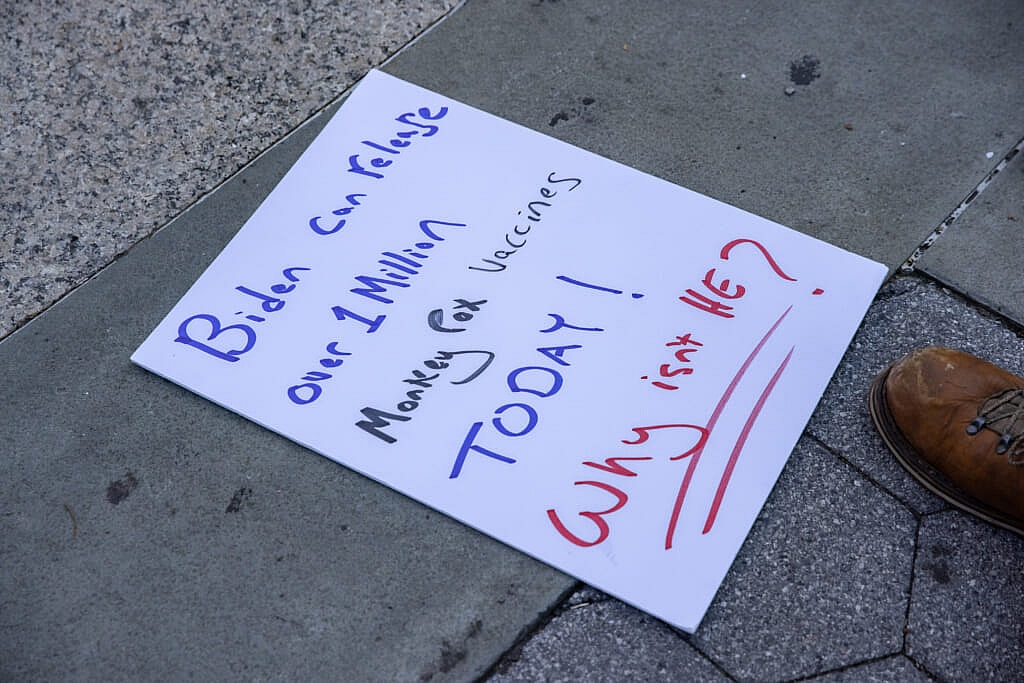 Biden Can release
over 1 Million
Monkey Pox vaccines
TODAY!
Why isnt HE?